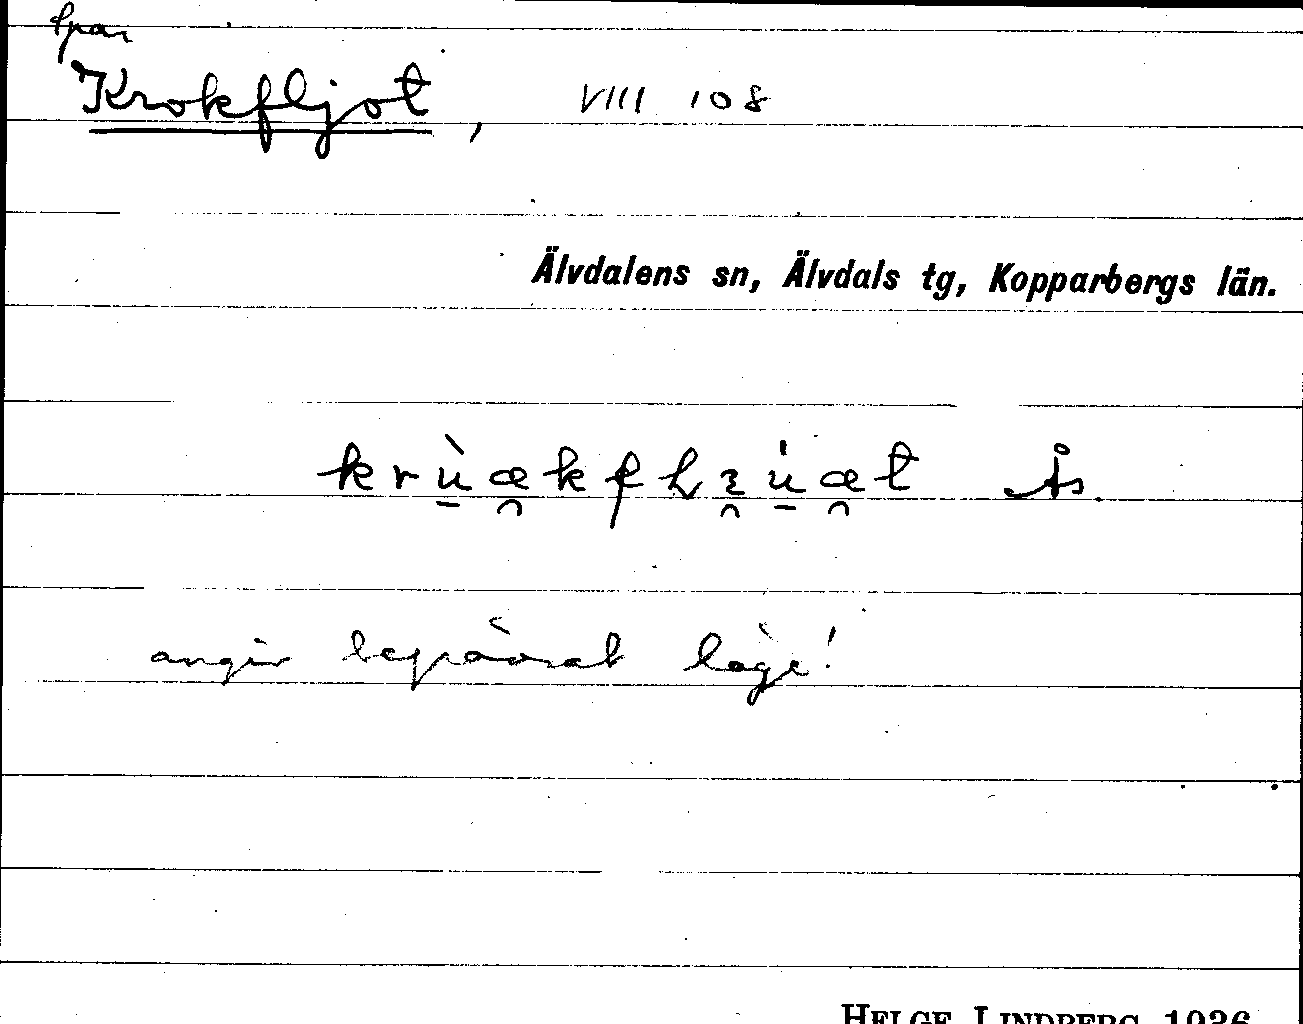 Spar
Krokfljot, VIII 108
Älvdalens sn, Älvdals tg, Kopparbergs län.
Ås.
angiv begärat läge!
HELGE LINDBERG 1936